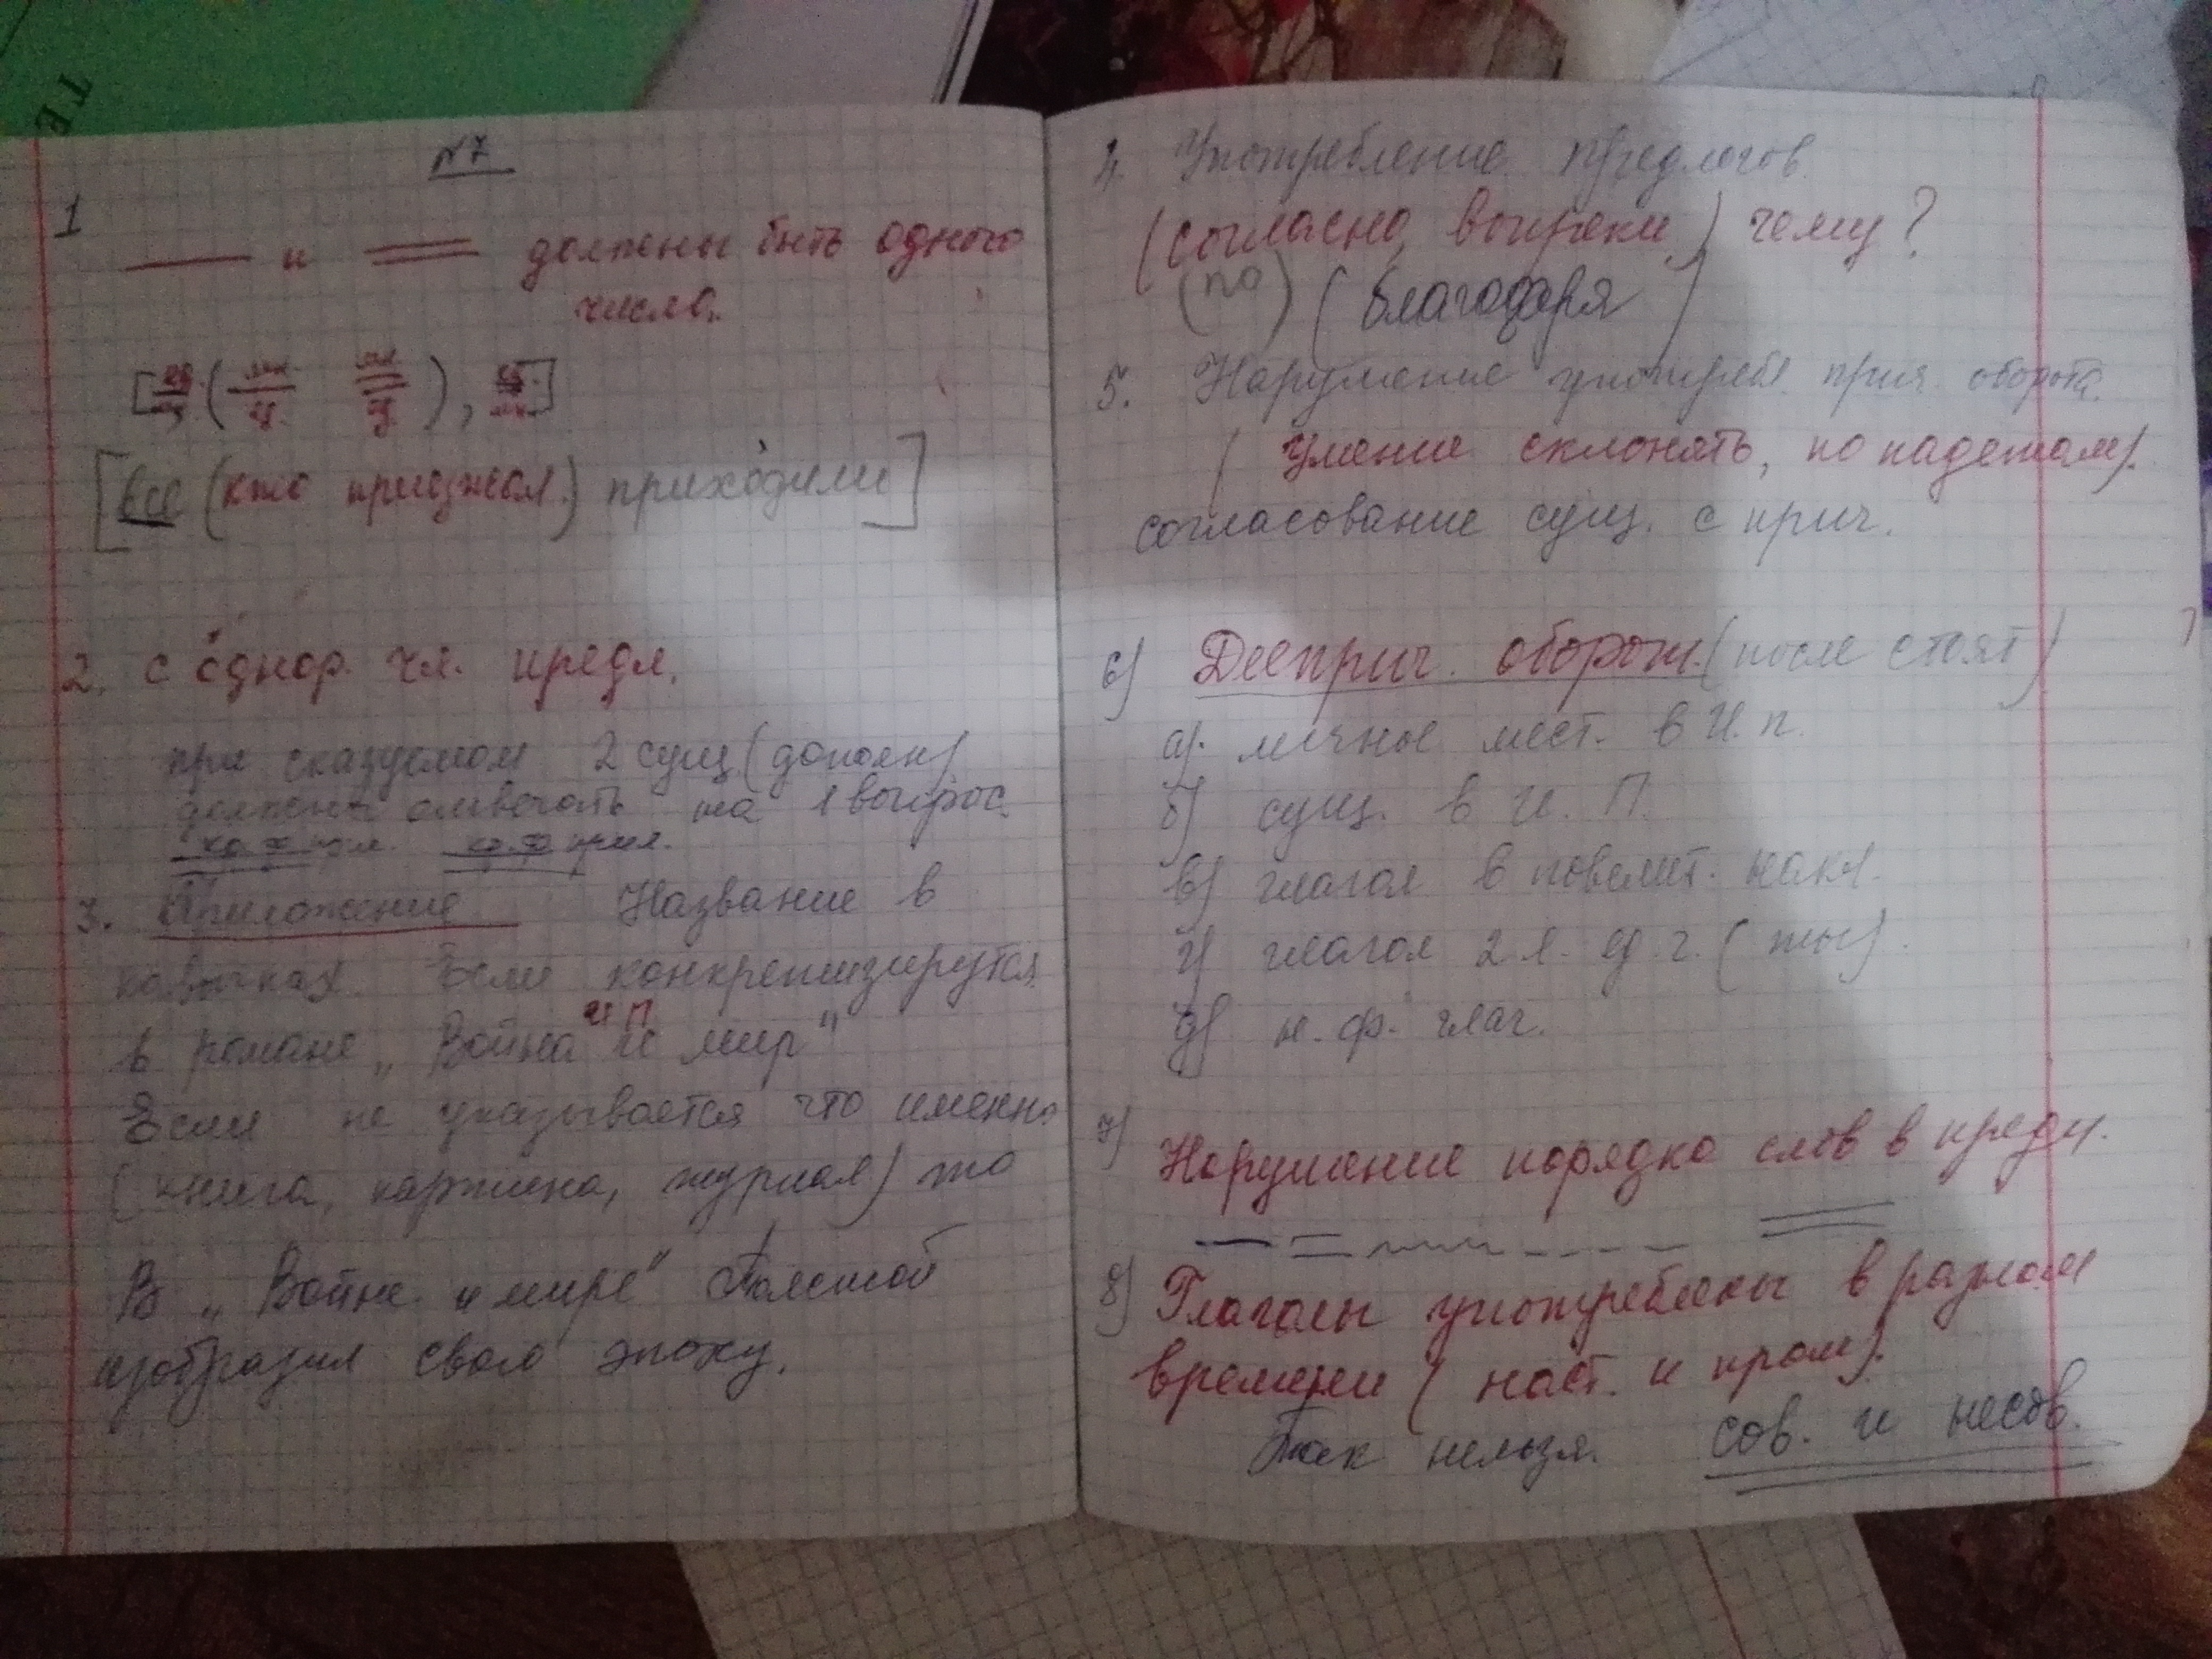 ТЕ
№7
1
и должны быть одного
числа.
[ед. (мн. мн.), ед.]
[все (кто приезжал) приходили]
2. с однор. чл. предл.
при сказуемом 2 сущ. (дополн)
должны отвечать на 1 вопрос.
кр. ф прил. кр. ф прил.
3. Приложение Название в
кавычках. Если конкретизируются
И П
в романе „Война и мир"
Если не указывается что именно
(книга, картина, журнал) то
В „Войне и мире" Толстой
изобразил свою эпоху.
4. Употребление предлогов.
(согласно, вопреки) чему?
(по) (благодаря)
5. Нарушение употребл. прич. оборота.
(умение склонять, по падежам).
согласование сущ. с прич.
6) Дееприч. оборот. (после стоят)
а). личное мест. в И. п.
б) сущ. в И. П.
в) глагол в повелит. накл.
г) глагол 2 л. ед. ч. (ты).
д) н. ф. глаг.
7) Нарушение порядка слов в предл.
8) Глаголы употреблены в разном
времени (наст. и прош).
Так нельзя. сов. и несов.